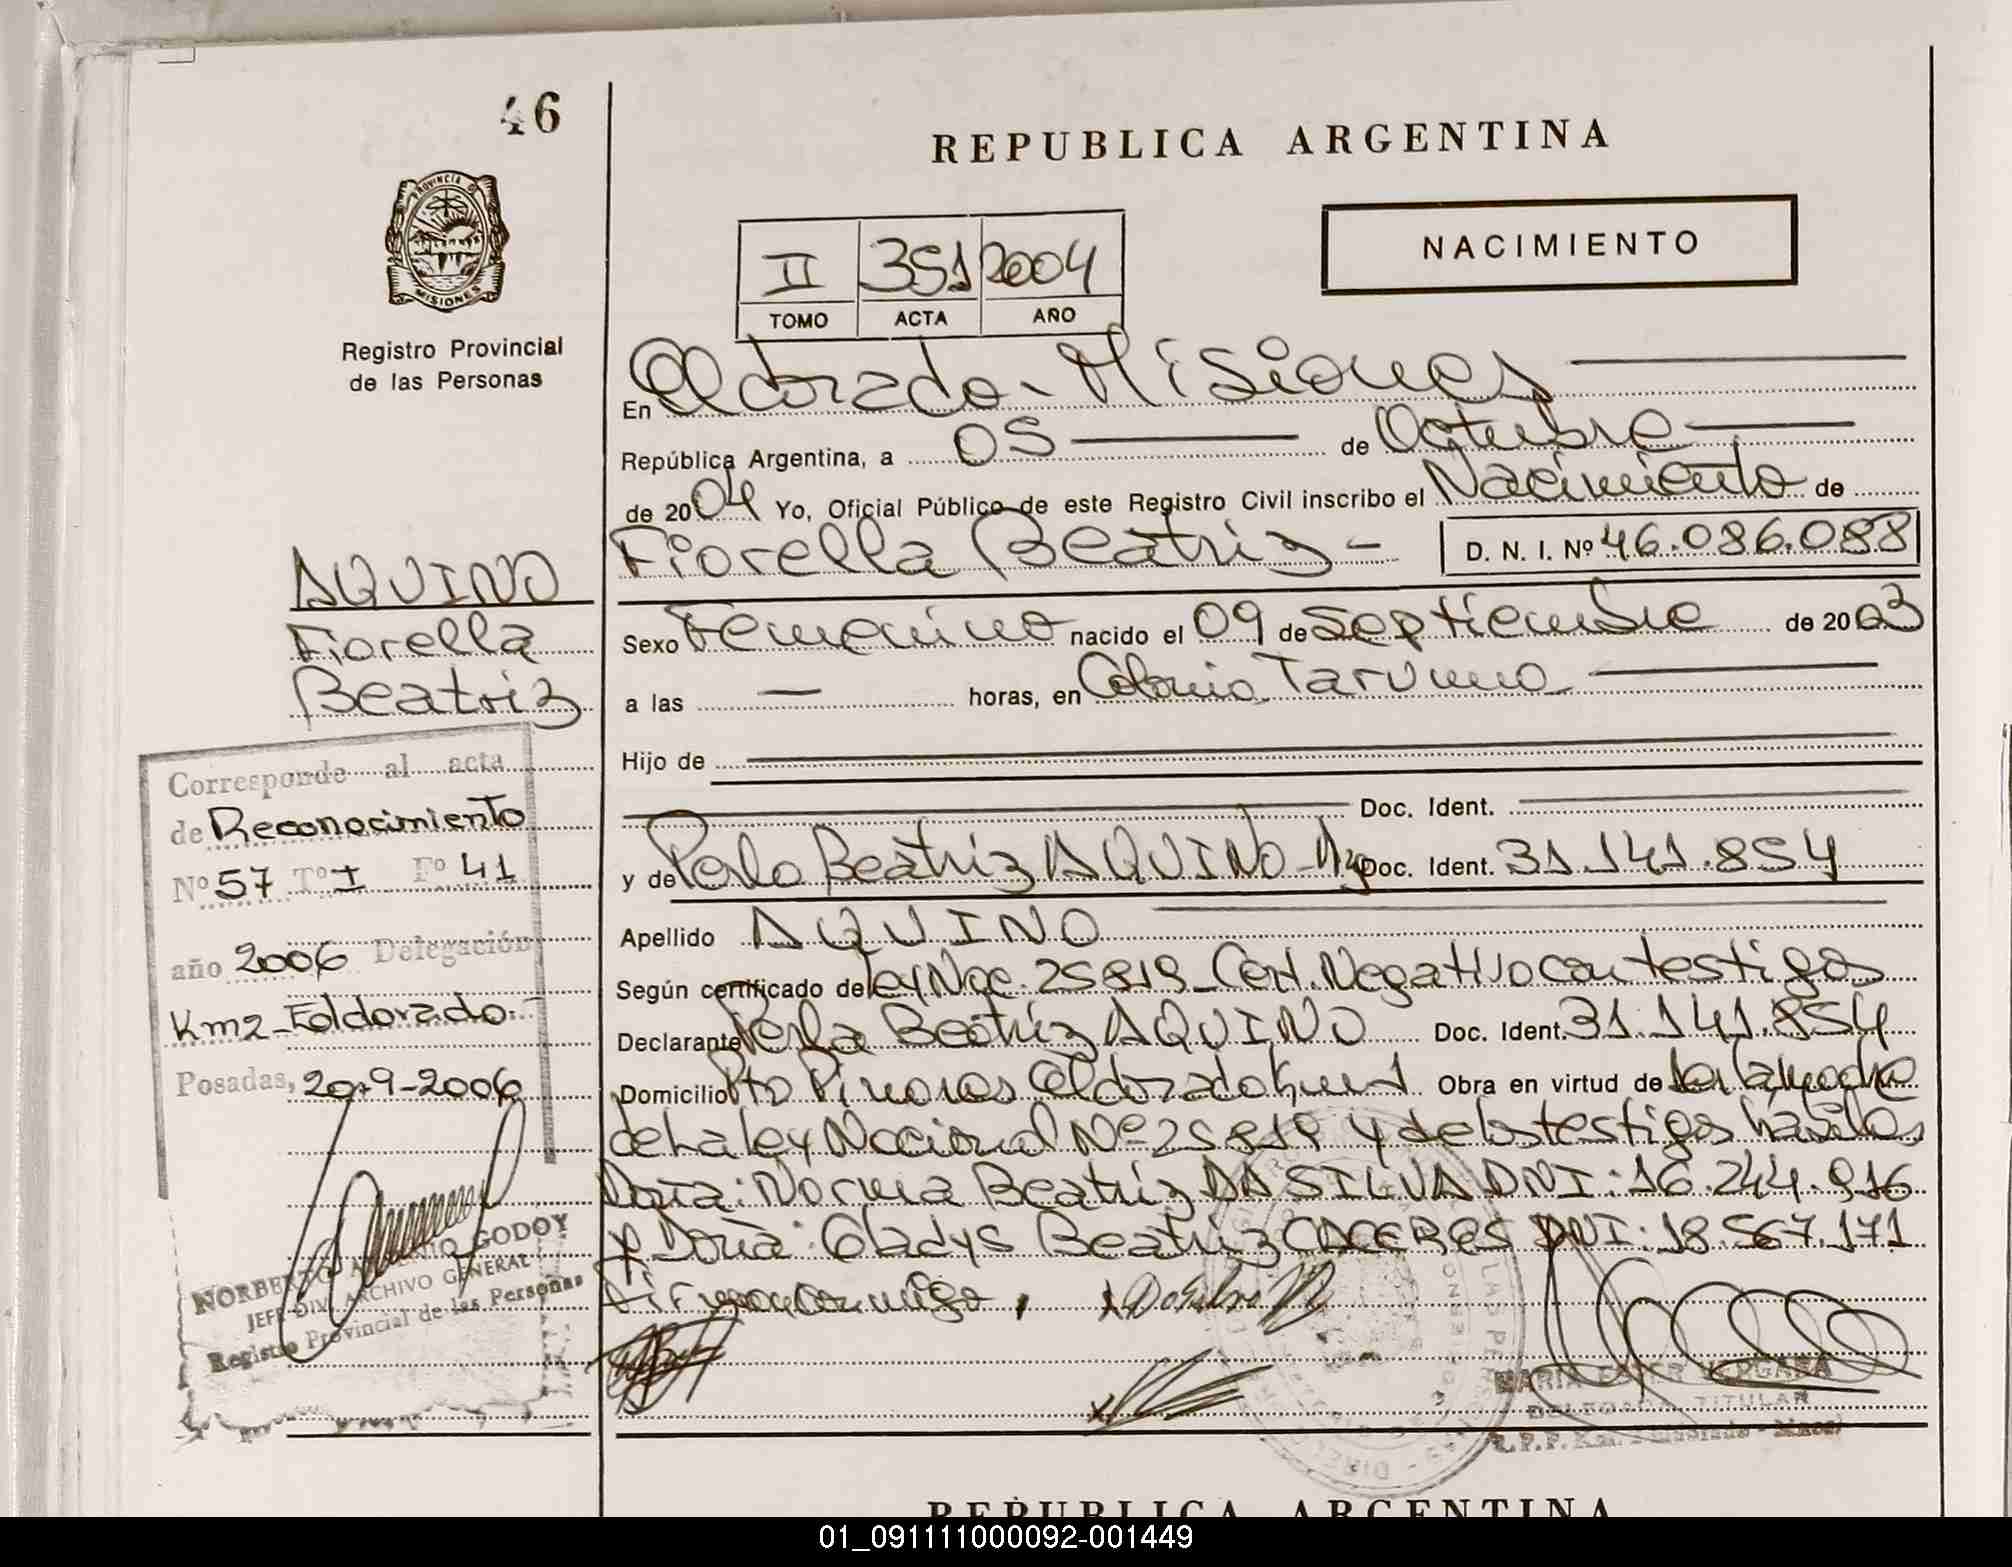 46
REPUBLICA ARGENTINA
PROVINCIA DE
MISIONES
Registro Provincial
de las Personas
NACIMIENTO
II 351 2004
TOMO ACTA AÑO
En Eldorado - Misiones
República Argentina, a 05 de Octubre
de 2004 Yo, Oficial Público de este Registro Civil inscribo el Nacimiento de
Fiorella Beatriz - D. N. I. Nº 46.086.088
Sexo Femenino nacido el 09 de Septiembre de 2003
a las — horas, en Colonia Taruma
Hijo de
Doc. Ident.
y de Perla Beatriz AQUINO - Doc. Ident. 31.141.854
Apellido AQUINO
Según certificado de Ley Nac. 25819 - Cert. Negativo con testigos
Declarante Perla Beatriz AQUINO Doc. Ident. 31.141.854
Domicilio Pto Pinares Eldorado Km 1 Obra en virtud de ser la madre
de la ley Nacional Nº 25819 y de los testigos hábiles
Doña: Norma Beatriz DA SILVA DNI: 16.244.916
y Doña: Gladys Beatriz CACERES DNI: 18.567.171
Firman conmigo.
MARIA ESTER VERGARA
DELEGADA TITULAR
AQUINO
Fiorella
Beatriz
Corresponde al acta
de Reconocimiento
Nº 57 Tº I Fº 41
año 2006 Delegación
Km2 - Eldorado -
Posadas, 20-9-2006
NORBERTO GODOY
JEFE DIV. ARCHIVO GENERAL
Registro Provincial de las Personas
REPUBLICA ARGENTINA
01_091111000092-001449